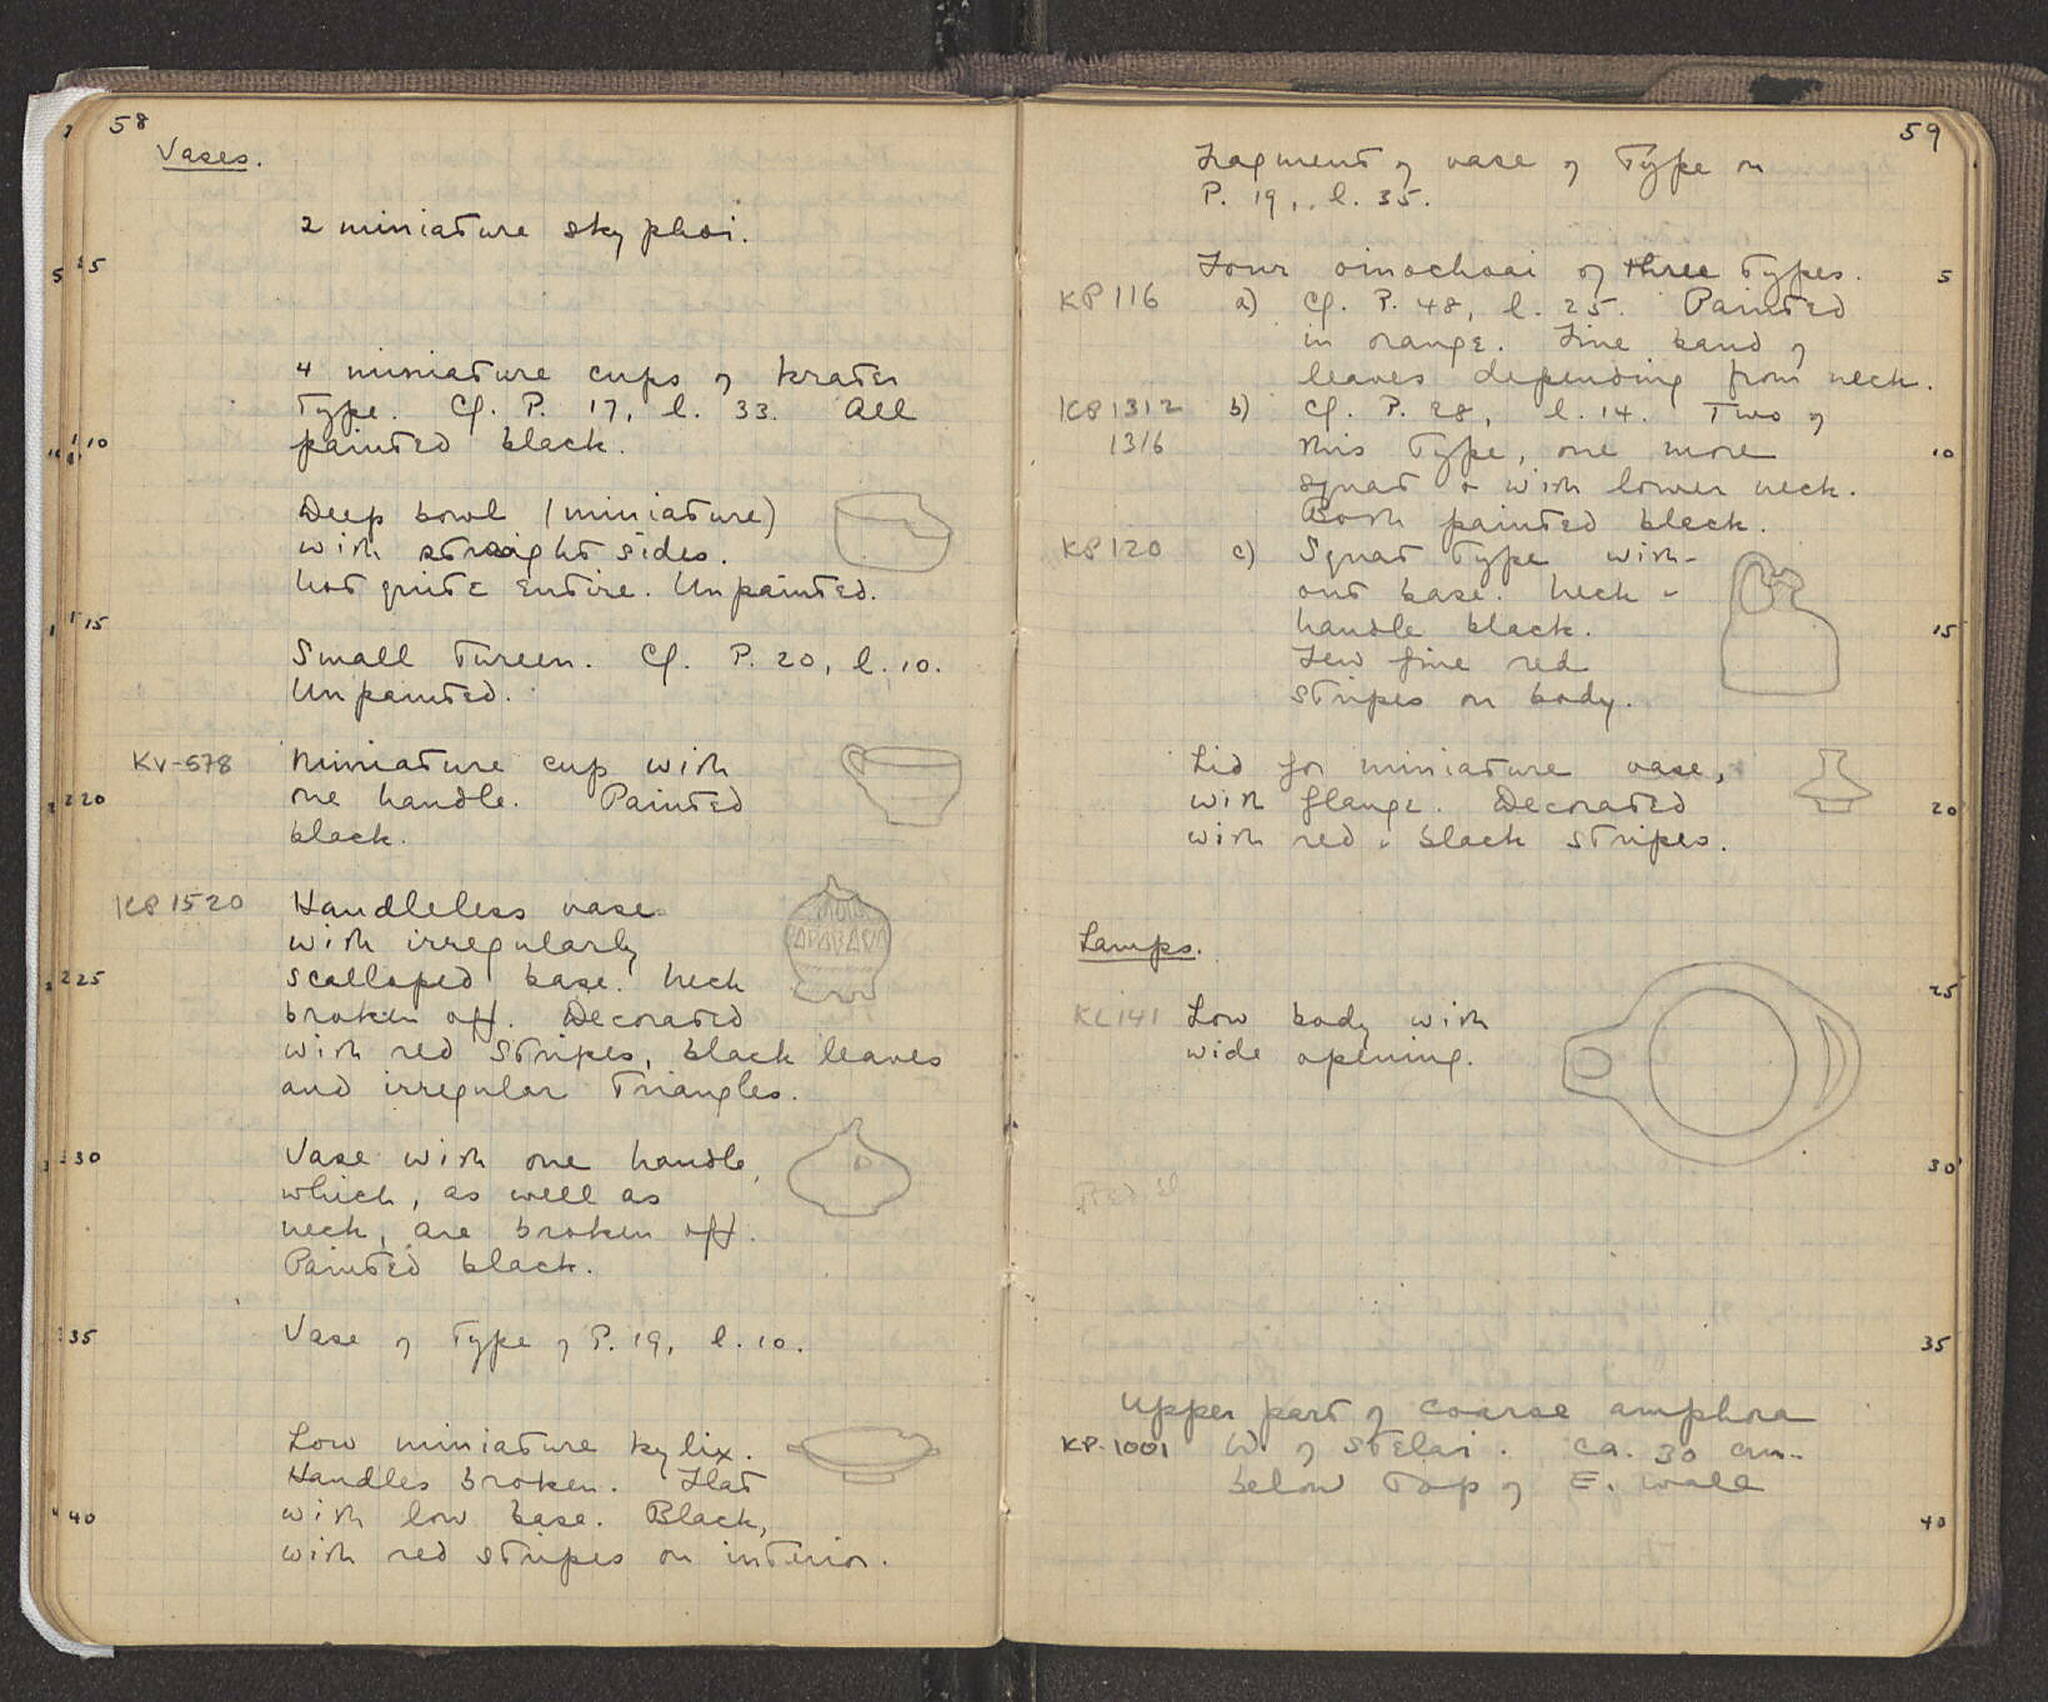 58
Vases.
2 miniature skyphoi.
5
4 miniature cups of krater
type. Cf. P. 17, l. 33. All
painted black.
10
Deep bowl (miniature)
with straight sides.
Not quite entire. Unpainted.
15
Small tureen. Cf. P. 20, l. 10.
Unpainted.
KV-578 Miniature cup with
20 one handle. Painted
black.
KP 1520 Handleless vase
with irregularly
25 scalloped base. Neck
broken off. Decorated
with red stripes, black leaves
and irregular triangles.
30 Vase with one handle,
which, as well as
neck, are broken off.
Painted black.
35 Vase of type of P. 19, l. 10.
Low miniature kylix.
Handles broken. Flat
40 with low base. Black,
with red stripes on interior.
59
Fragment of vase of type on
P. 19, l. 35.
Four oinochoai of three types. 5
KP 116 a) Cf. P. 48, l. 25. Painted
in orange. Fine band of
leaves depending from neck.
KP 1312 b) Cf. P. 28, l. 14. Two of
1316 this type, one more 10
squat & with lower neck.
Both painted black.
KP 120 c) Squat type with-
out base. Neck &
handle black. 15
Few fine red
stripes on body.
Lid for miniature vase,
with flange. Decorated 20
with red & black stripes.
Lamps.
25
KL 141 Low body with
wide opening.
30
35
Upper part of coarse amphora
KP-1001 W. of Stelai. ca. 30 cm.
below top of E. wall
40